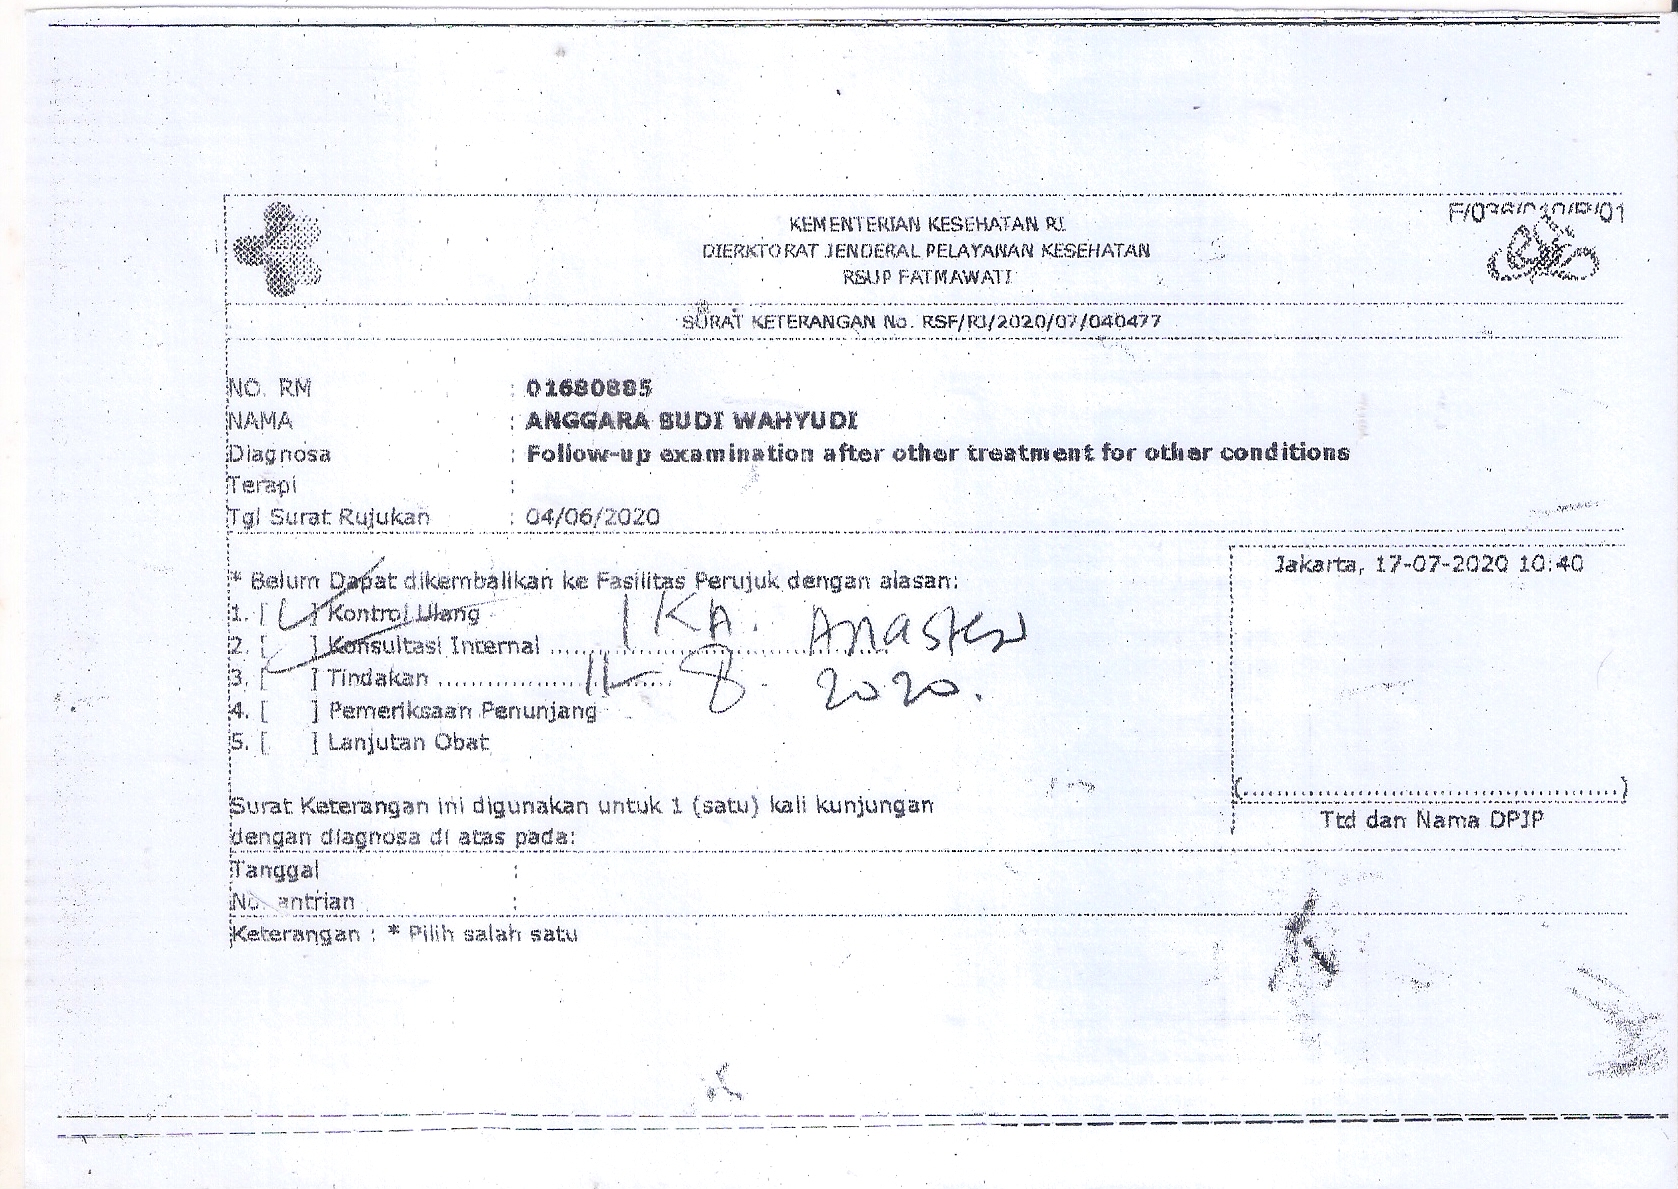 KEMENTERIAN KESEHATAN RI
DIERKTORAT JENDERAL PELAYANAN KESEHATAN
RSUP FATMAWATI
SURAT KETERANGAN No. RSF/RJ/2020/07/040477
NO. RM : 01680885
NAMA : ANGGARA BUDI WAHYUDI
Diagnosa : Follow-up examination after other treatment for other conditions
Terapi :
Tgl Surat Rujukan : 04/06/2020
Jakarta, 17-07-2020 10:40
* Belum Dapat dikembalikan ke Fasilitas Perujuk dengan alasan:
1. [ ] Kontrol Ulang
2. [ ] Konsultasi Internal .......... IKA. Anastesi
3. [ ] Tindakan .......... 8. 2020.
4. [ ] Pemeriksaan Penunjang
5. [ ] Lanjutan Obat
(..........)
Ttd dan Nama DPJP
Surat Keterangan ini digunakan untuk 1 (satu) kali kunjungan
dengan diagnosa di atas pada:
Tanggal :
No. antrian :
Keterangan : * Pilih salah satu